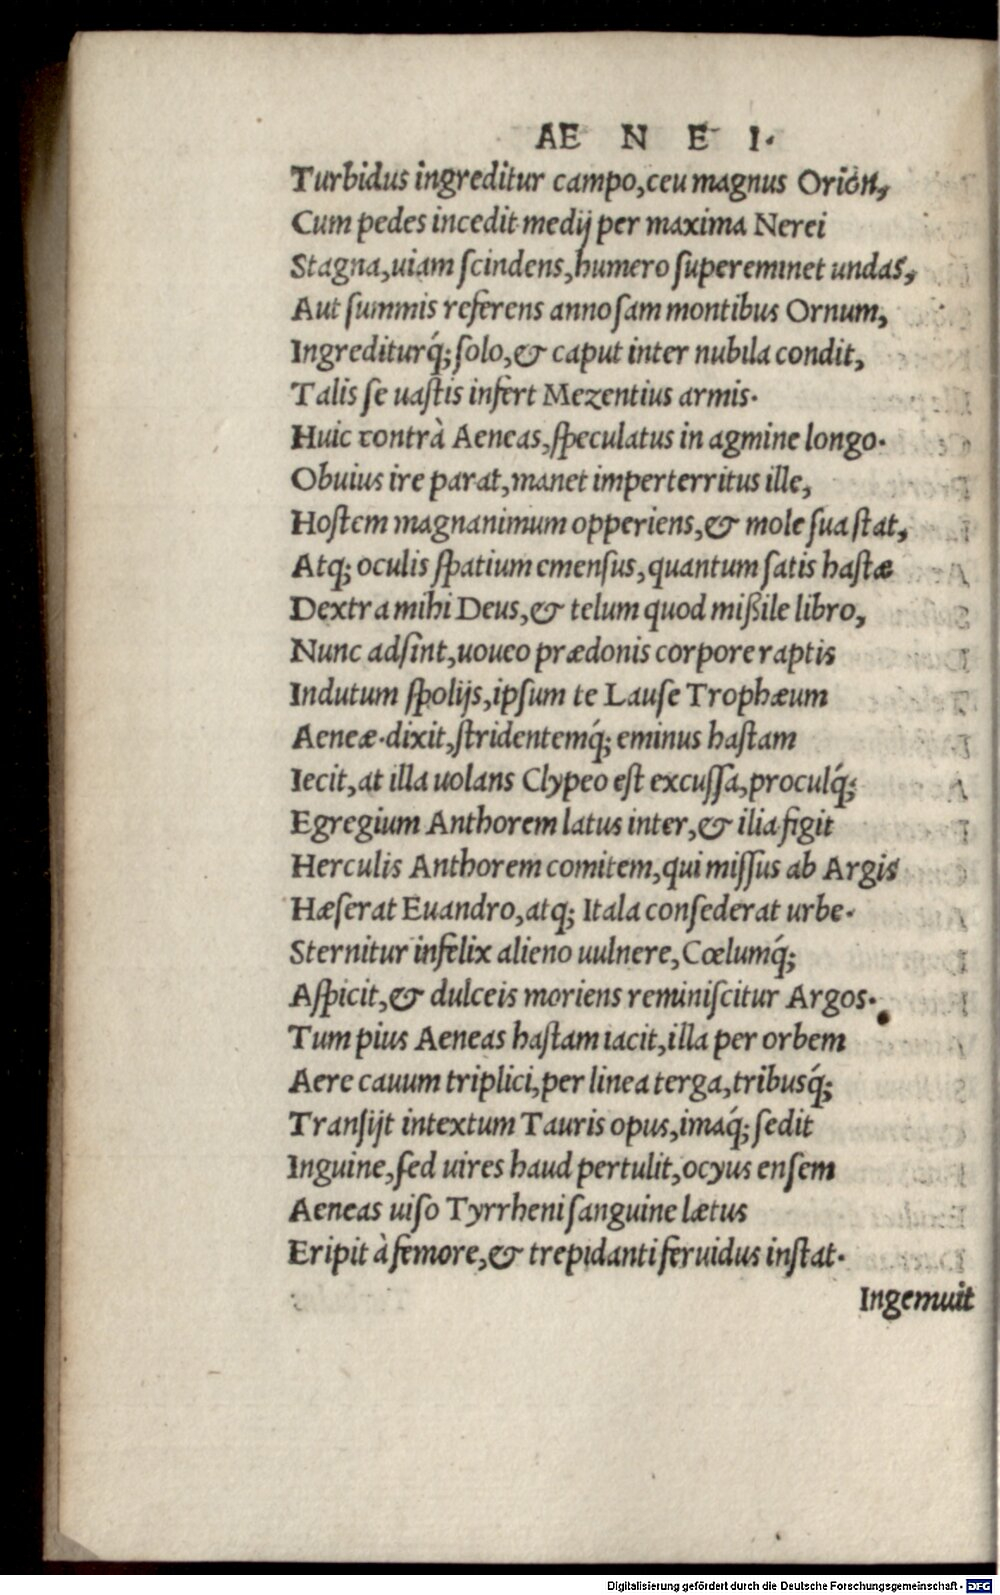 AE N E I.
Turbidus ingreditur campo,ceu magnus Orion,
Cum pedes incedit medij per maxima Nerei
Stagna,uiam ſcindens,humero ſupereminet undas,
Aut ſummis referens annoſam montibus Ornum,
Ingrediturq́;ſolo,& caput inter nubila condit,
Talis ſe uaſtis infert Mezentius armis.
Huic contrà Aeneas,ſpeculatus in agmine longo.
Obuius ire parat,manet imperterritus ille,
Hoſtem magnanimum opperiens,& mole ſua ſtat,
Atq; oculis ſpatium emenſus,quantum ſatis haſtæ
Dextra mihi Deus,& telum quod mißile libro,
Nunc adſint,uoueo prædonis corpore raptis
Indutum ſpolijs,ipſum te Lauſe Trophæum
Aeneæ.dixit,ſtridentemq́; eminus haſtam
Iecit,at illa uolans Clypeo eſt excuſſa,proculq́;
Egregium Anthorem latus inter,& ilia figit
Herculis Anthorem comitem,qui miſſus ab Argis
Hæſerat Euandro,atq; Itala conſederat urbe.
Sternitur infelix alieno uulnere,Cœlumq́;
Aſpicit,& dulceis moriens reminiſcitur Argos.
Tum pius Aeneas haſtam iacit,illa per orbem
Aere cauum triplici,per linea terga,tribusq́;
Tranſijt intextum Tauris opus,imaq́; ſedit
Inguine,ſed uires haud pertulit,ocyus enſem
Aeneas uiſo Tyrrheni ſanguine lætus
Eripit à femore,& trepidanti feruidus inſtat.
Ingemuit
Digitalisierung gefördert durch die Deutsche Forschungsgemeinschaft - DFG